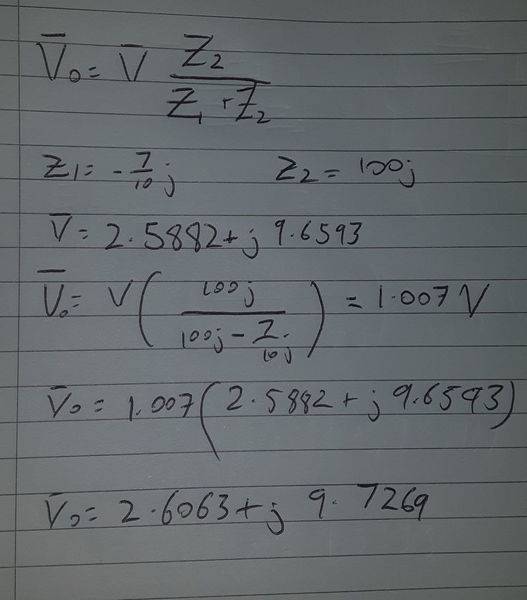 V̅₀ = V̅ Z₂ / (Z₁ + Z₂)
Z₁ = -7/10 j Z₂ = 100j
V̅ = 2.5882 + j 9.6593
V̅₀ = V (100j / (100j - 7/10 j)) = 1.007 V
V̅₀ = 1.007 (2.5882 + j 9.6593)
V̅₀ = 2.6063 + j 9.7269